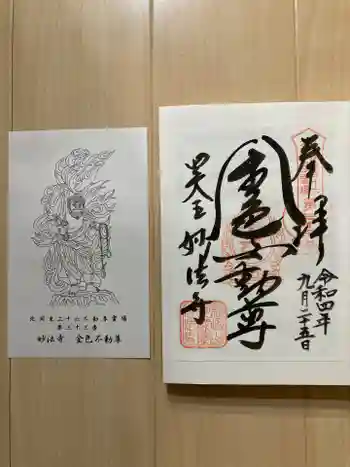 北関東三十六不動尊霊場
第三十三番
妙法寺 金色不動尊
奉拝
令和四年
九月二十五日
金色不動尊
妙法寺